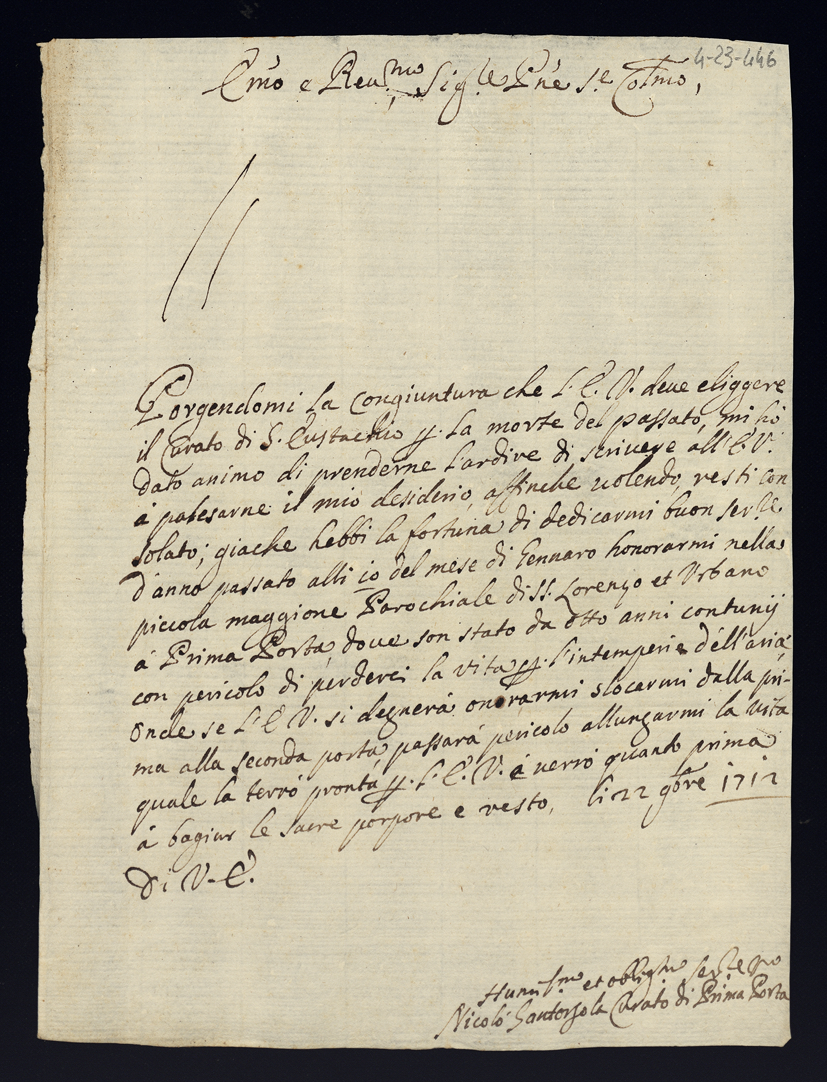 4-23-446
Emo e Reu.mo Sig.le Pne s.e Colmo,
Porgendomi la Congiuntura che L'.E.V. deue eliggere
il Curato di S. Eustachio p. la morte del passato, mi hò
dato animo di prenderne l'ardire di scriuere all'E.V.
à palesarne il mio desiderio, affinche uolendo, resti con
solato; giache hebbi la fortuna di dedicarmi buon ser.re
d'anno passato alli 10 del mese di Gennaro honorarmi nella
piccola maggione Parochiale di SS. Lorenzo et Urbano
à Prima Porta, doue son stato da otto anni contunij
con pericolo di perderci la vita p. l'intemperie dell'aria,
Onde se L'E.V. si degnerà onorarmi slocarmi dalla pri-
ma alla seconda porta, passarà pericolo allungarmi la uita
quale la terrò pronta p. L'.E.V. e verrò quanto prima
à bagiar le sacre porpore e resto, li 22 9bre 1712
Di V.E.
Humiss.mo et obblig.mo Ser.re
Nicolò Santorsola Curato di Prima Porta